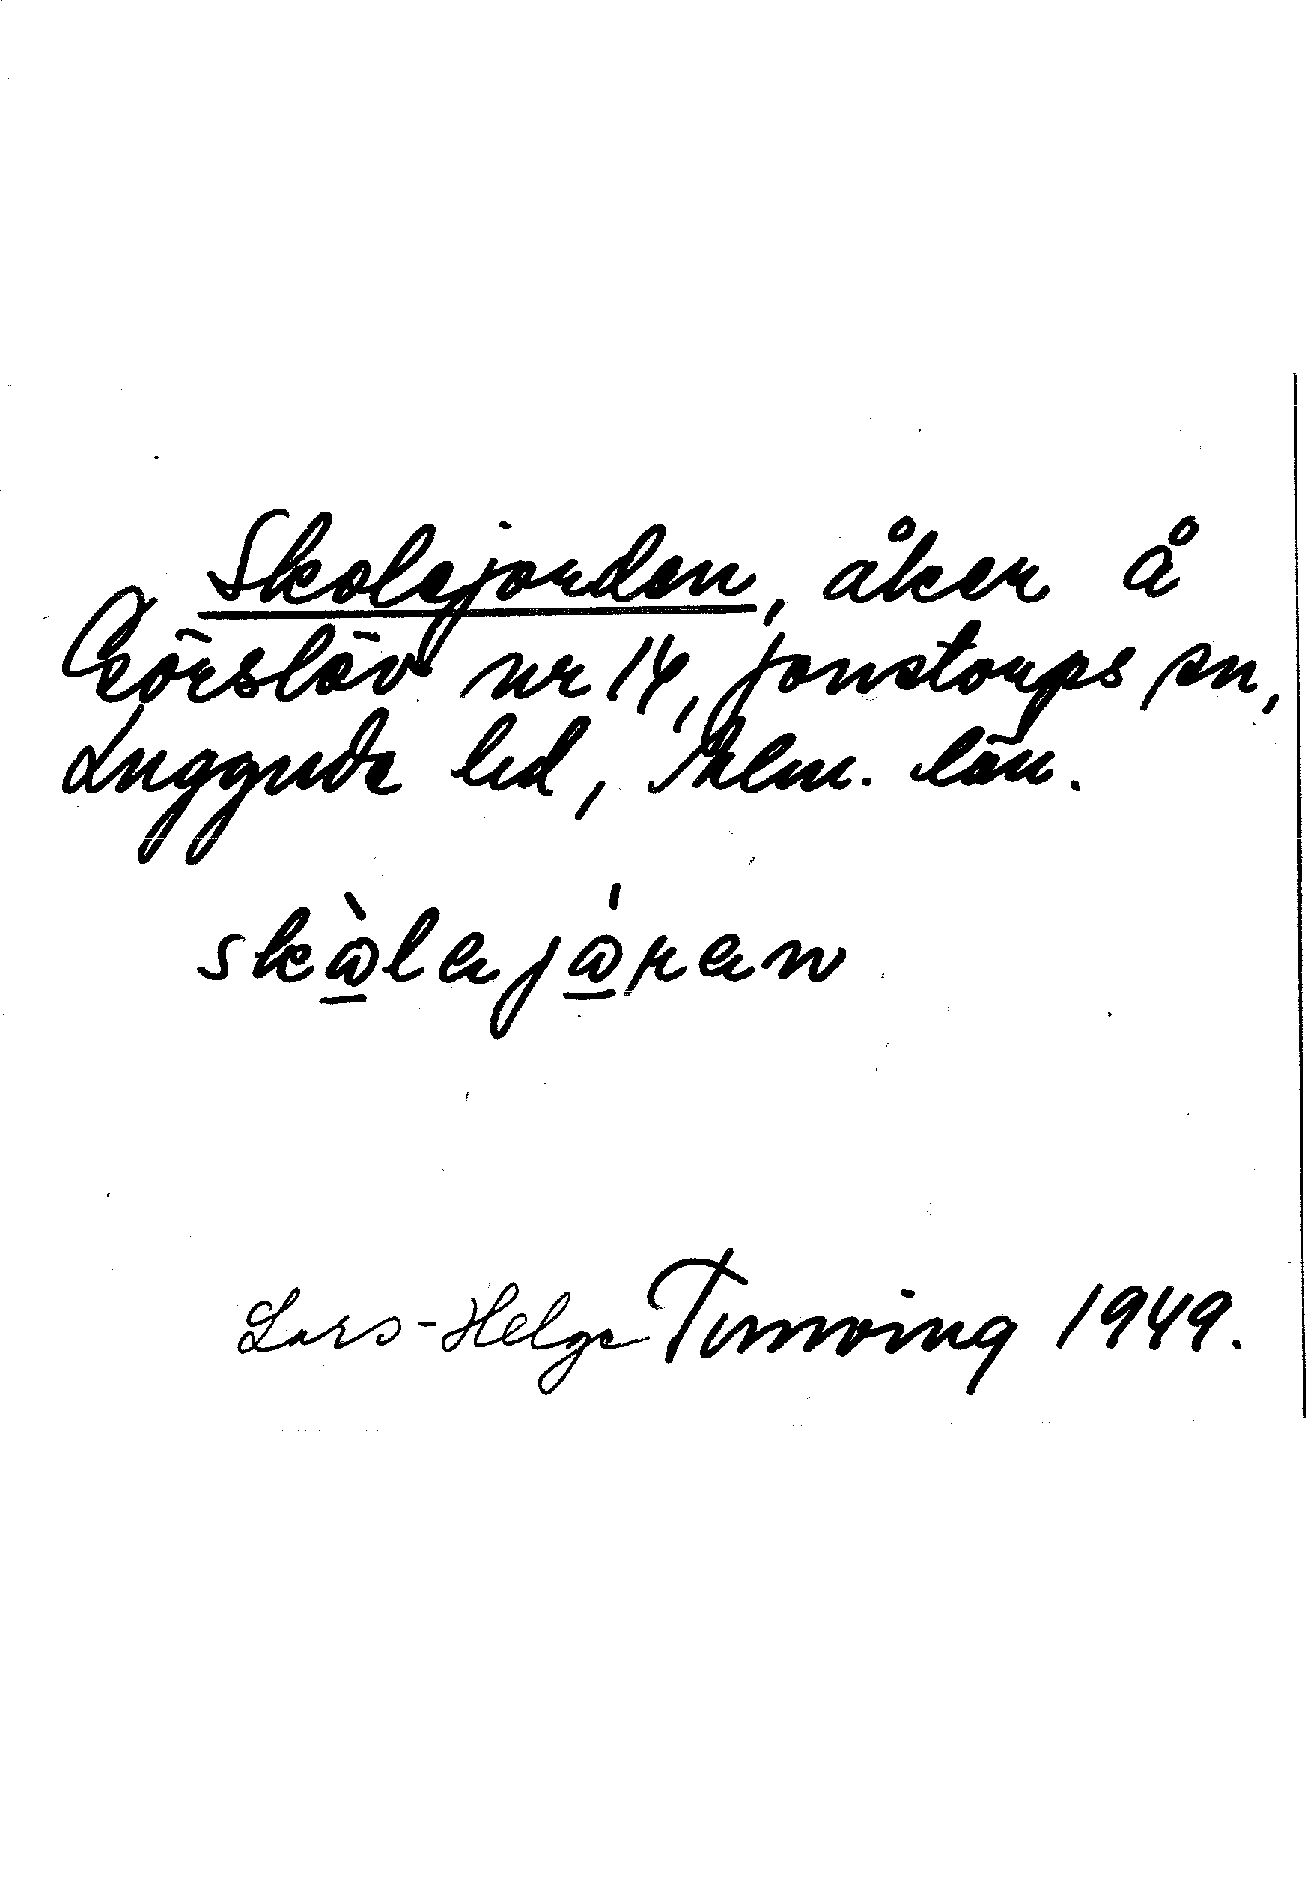 Skolejorden, åker å
Görslöv nr 14, Jonstorps sn,
Luggude hd, Mlm. län.
skàlejáren
Lars-Helge Tunving 1949.